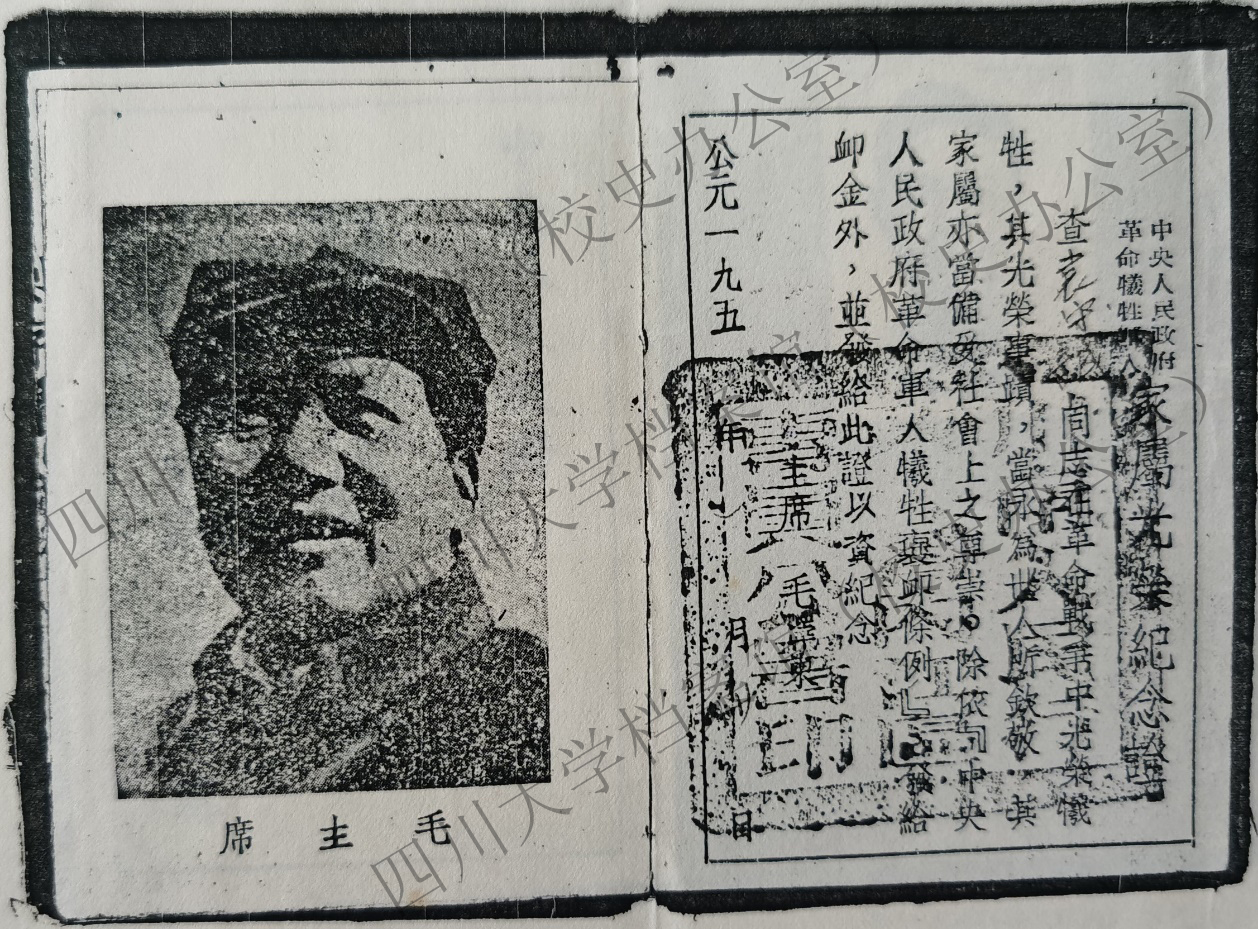 中央人民政府
革命犧牲軍人
家屬光榮紀念證
查袁 同志在革命戰爭中光榮犧
牲，其光榮事蹟，當永為世人所欽敬。其
家屬亦當備受社會上之尊崇。除依『中央
人民政府革命軍人犧牲褒卹條例』發給
卹金外，並發給此證以資紀念
主席 毛澤東
公元一九五 年 月 日
毛主席
四川大学档案馆（校史办公室）
四川大学档案馆（校史办公室）
四川大学档案馆（校史办公室）